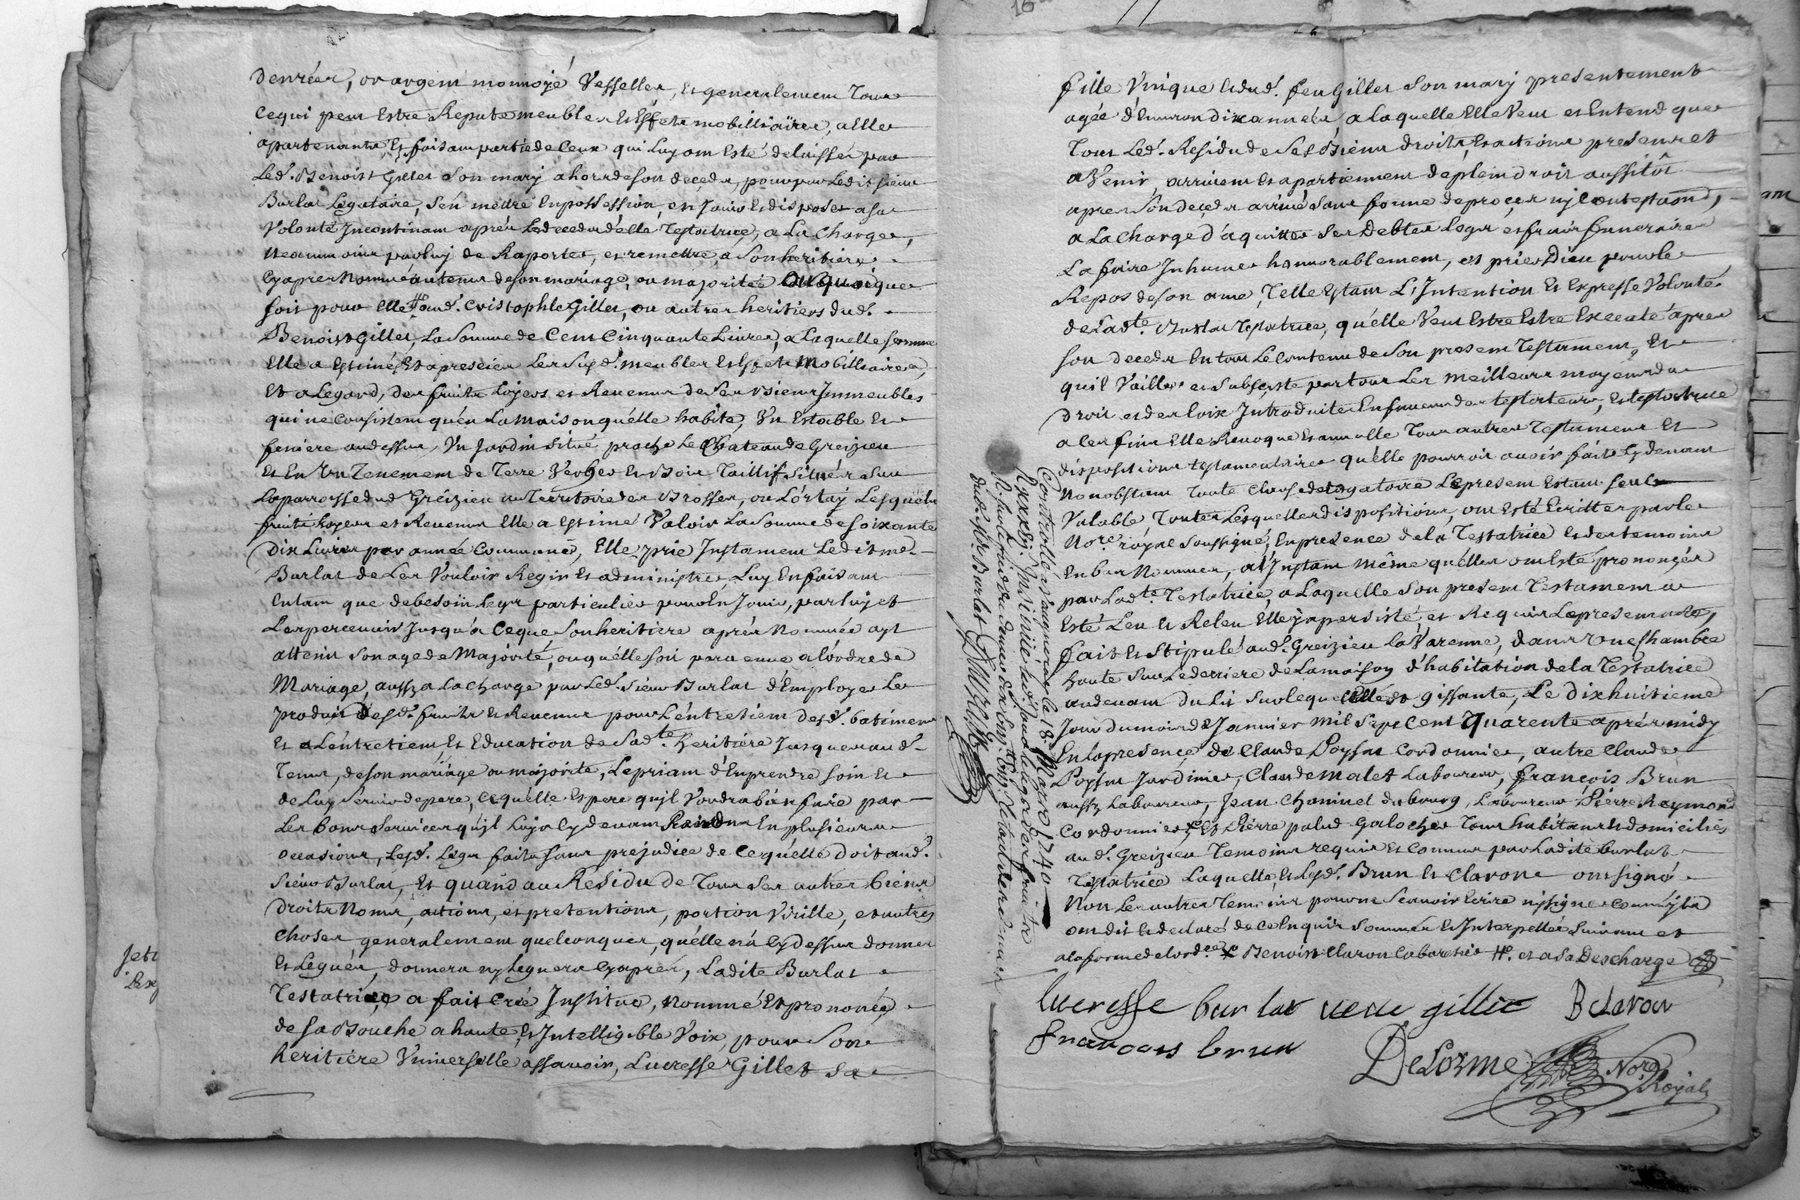 denrées, or argent monnoyé Vesselles, et generalement Tout
Cequi peut Estre Reputé meubles Et Effets mobilliaires, a Elle
apartenants Et faisant partie de Ceux qui Luy ont Esté delaissés par
Led. Benoist Gillet son mary a hors de son deceds, pour par Ledit sieur
Burlat Legataire, s'en mettre En possession, en Jouir Et disposer a sa
Volonté Incontinant aprés Le deceds d'elle Testatrice, a La Charge,
neanmoins par luy de Raporter, et remettre, a son heritiere
Cyapres Nommée au tems de son mariage, ou majorité ou quoique
soit pour Elle # aud. Cristophle Gillet, ou autres heritiers dud.
Benoist Gillet, La Somme de Cent Cinquante Livres, a Laquelle somme
Elle a Estimé Et apreciéz Les Susd. meubles Et Effets Mobilliaires,
Et a Legard, des fruits Loyers et Revenus de Ses Biens Immeubles
qui ne Consistent qu'en La maison qu'elle habite, Un Estable Et
feniere au dessus, Un Jardin situé proche Le Chateau de Greizieu
Et En Un Tenement de Terre Verger Et Bois Taillif situés sur
La parroisse dud. Greizieu au Territoire des Brosses, ou L'ortay Lesquels
fruits Loyers et Revenus Elle a Estimé Valoir La Somme de Soixante
Dix Livres par année Commune, Elle prie Instament Ledit me.
Burlat de Les Vouloir Regir Et administrer Luy En faisant
Entant que de besoin Legs particulier pour En Jouir, par luy et
Les percevoir Jusqu'a Ceque Son heritiere aprés Nommée ayt
atteint son age de Majorité, ou quelle soit parvenue a l'ordre de
Mariage, aussy a La charge par Led. Sieur Burlat d'Employer Le
produit Desd. fruits Et Revenus pour L'entretient desd. batiments
Et a L'entretient Et Education de Sadte. heritiere Jusques aud.
Tems, de son mariage ou majorité, Le priant d'En prendre soin Et
de Luy Servir de pere, Ce qu'elle Espere qu'il Voudra bien faire par
Les bons Services qu'il Luy a Cy devant Rendus En plusieurs
occasions, Lesd. Legs faits sans prejudice de Ce qu'elle Doit aud.
Sieur Burlat, Et quand au Residu de Tous Ses autres biens
droits Noms, actions, et pretentions, portion Virille, et autres
choses generalement quelconques, qu'elle n'a Cy dessus donnés
Et Legués, donnera ny Leguera Cyaprés, Ladite Burlat
Testatrice a fait Créé Institué, nommé Et prononcé
de Sa Bouche a haute, Et Intelligible Voix, pour Son
heritiere Universelle assavoir, Lucresse Gillet sa
fille Unique Et dud. feu Gillet Son mary presentement
agée d'Environ dix années, a Laquelle Elle Veut et Entend que
Tout Led. Residu de Ses Biens droits, Et actions presents et
a Venir, arrivent Et apartiennent de plein droit aussitôt
apres Son deceds arrivé sans forme de procés ny Contestation,
a La charge d'aquitter Ses Debtes Legs et frais funeraires
La faire Inhumer honnorablement, et prier Dieu pour le
Repos de son ame, Telle Estant L'Intention Et Expresse Volonté
de Ladte. Burlat Testatrice, qu'elle Veut Estre Estre Executé aprés
Son deceds En tout Le Contenu de Son present Testament, Et
quil Vaille et Subsiste par tous Les meilleurs moyens de
Droit et des Loix Introduites En faveur des testateurs, Et testatrice
a Ces fins Elle Revoque Et annulle Tous autres Testaments Et
dispositions testamentaires qu'elle pourroit avoir fait Cy devant
Nonobstant toute Clause derogatoire Le present Estant seul
Valable Toutes Lesquelles dispositions, ont Esté Ecrittes par le
Nore. royal Soussigné, En presence de la Testatrice Et des temoins
En bas Nommés, a l'Instant même qu'elles ont Esté prononcés
par Ladte. Testatrice, a Laquelle Son present Testament a
Esté Leu Et Releu Elle y a persisté, et Requis Le present acte,
fait Et Stipulé aud. Greizieu La Varenne, dans Une Chambre
haute Sur Le derriere de La maison d'habitation de la Testatrice
au devant du Lit Sur lequel Elle Est gissante, Le dixhuitieme
Jour du mois de Janvier mil Sept Cent Quarente aprés midy
En La presence, de Claude Poyssat Cordonnier, autre Claude
Poyssat Jardinier, Claude Malet Laboureur, françois Brun
aussy Laboureur, Jean Choninet du bourg, Laboureur Pierre Reymond
Cordonnier, # Et Pierre palud Galocher Tous habitants Et domiciliés
aud. Greizieu Temoins requis et Connus par Ladite Burlat
Testatrice Laquelle, et Lesd. Brun Et Claron ont signé
Non Les autres temoins pour ne Scavoir Ecrire ny signer Comm'ils
ont dit Et declaré de Ce Enquis Sommés Et Interpellés Suivant et
a la forme de L'ord.ce # Benoist Claron Cabaretier #. et a Sa Descharge
Lucresse burlat veve gillit B Claron
françois brun
DeLorme Nore
Royal
Controllé a St chamond le 18e. Mars 1740
dud. Sr. Burlat
Jeti
Lesq
16